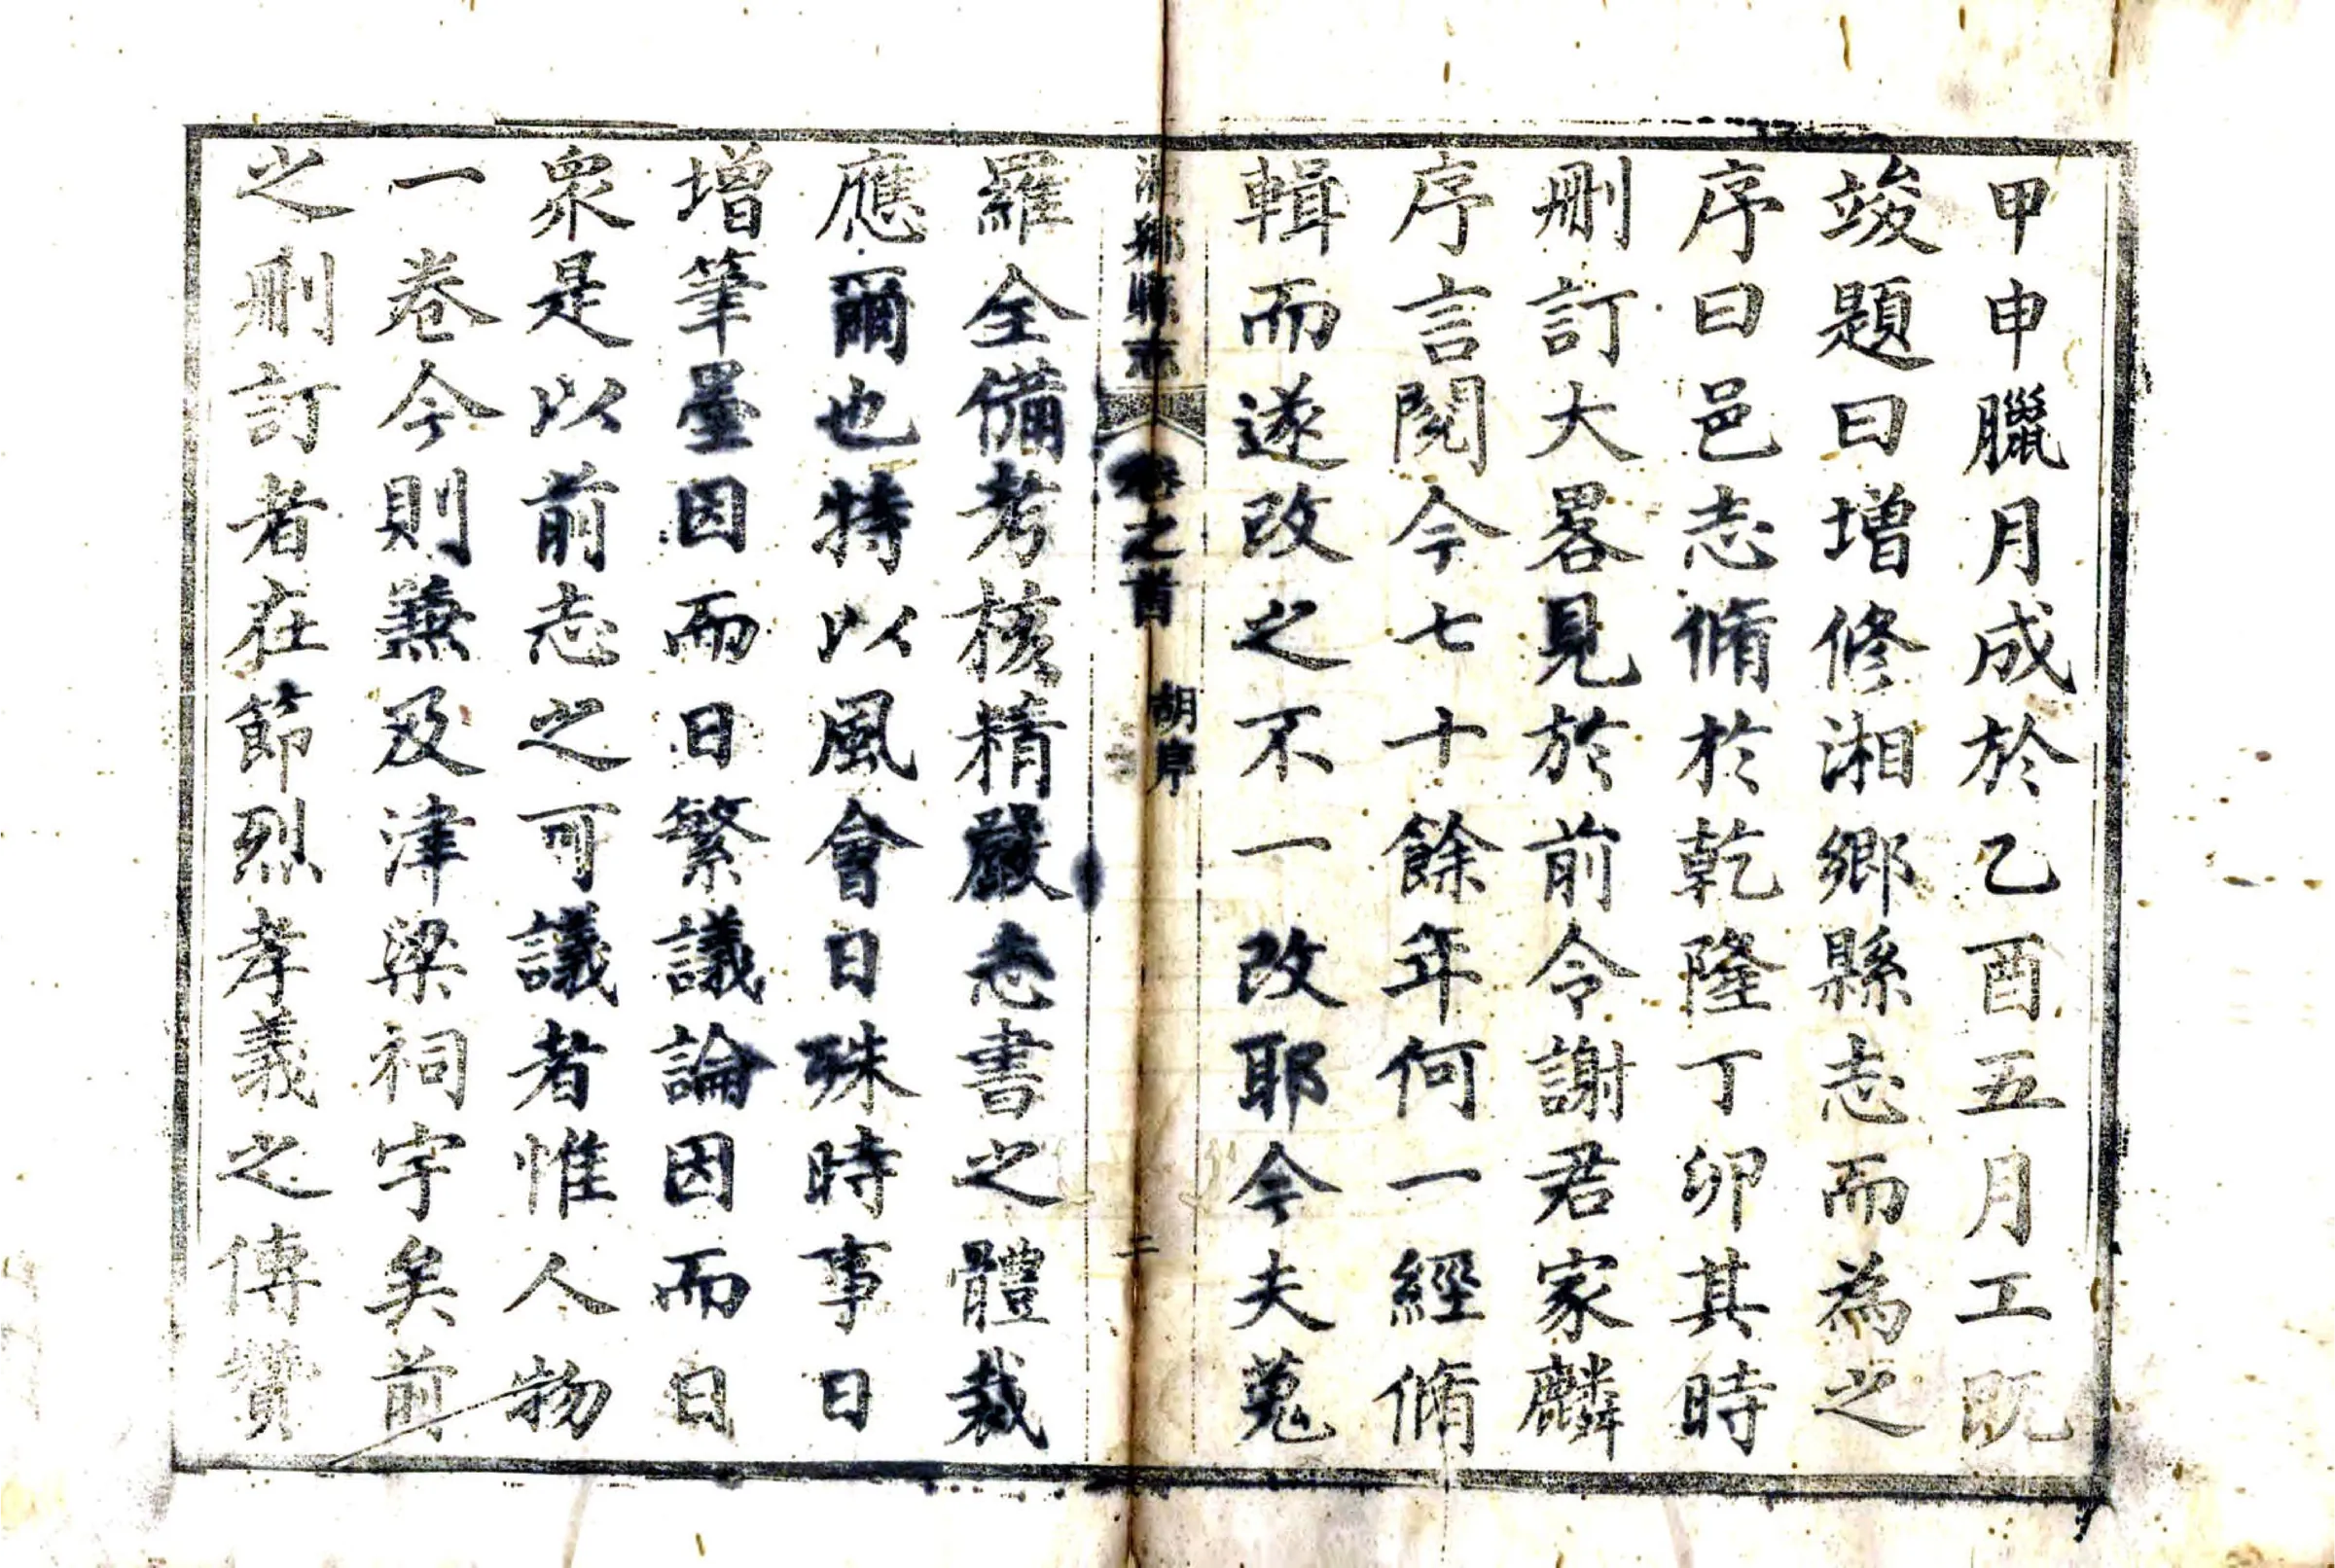 甲申臘月成於乙酉五月工既
竣題曰增修湘鄉縣志而為之
序曰邑志脩於乾隆丁卯其時
刪訂大畧見於前令謝君家麟
序言閱今七十餘年何一經脩
輯而遂改之不一改耶今夫蒐
湘鄉縣志 卷之首 胡序 二
羅全備考核精嚴志書之體裁
應爾也特以風會日殊時事日
增筆墨因而日繁議論因而日
衆是以前志之可議者惟人物
一卷今則兼及津梁祠宇矣前
之刪訂者在節烈孝義之傳贊